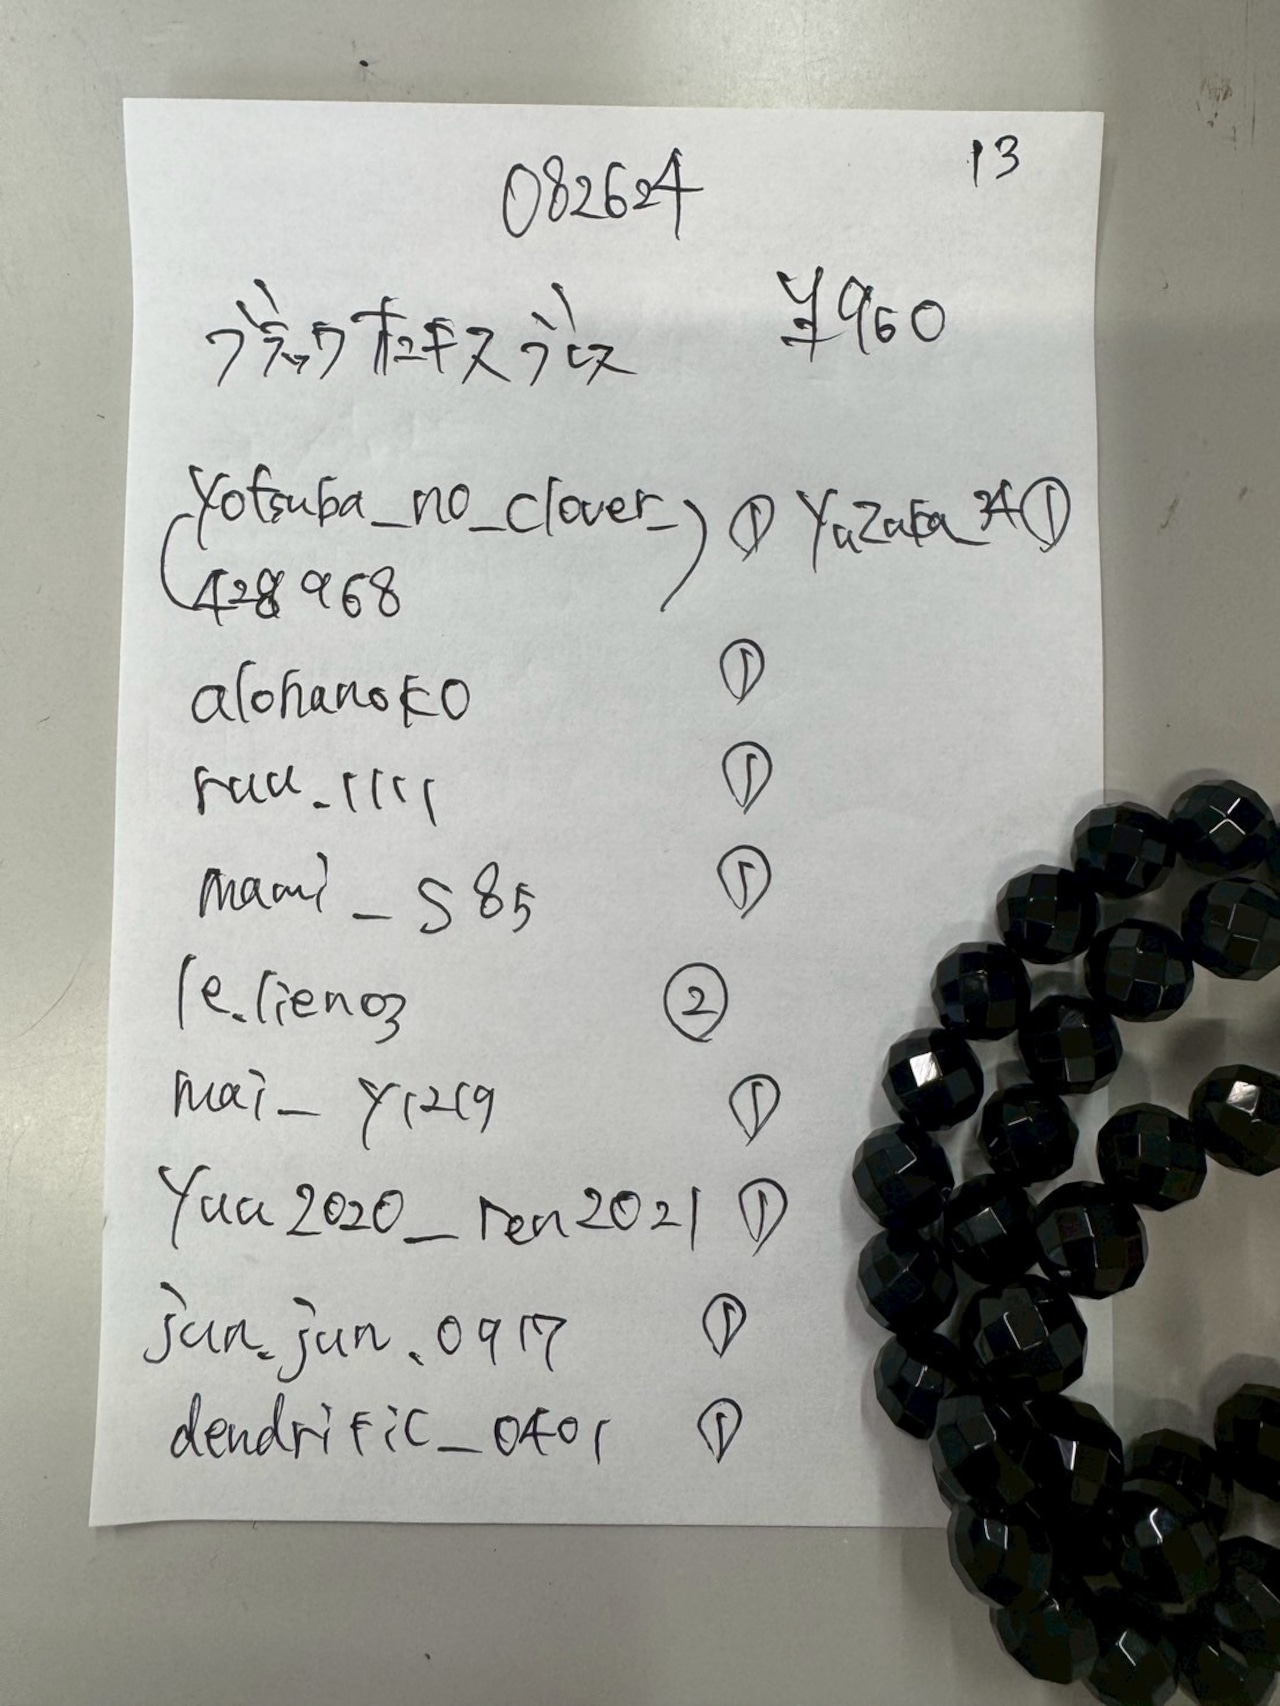 13
082624
ブラックオニキスブレス ¥960
(yotsuba_no_clover_ ) ① Yuzuka_34①
428968
alohanoko ①
ruu_1111 ①
mami_s85 ①
le.lien03 ②
mai_y1219 ①
yuu2020_ren2021 ①
jun.jun.0917 ①
dendrific_0401 ①